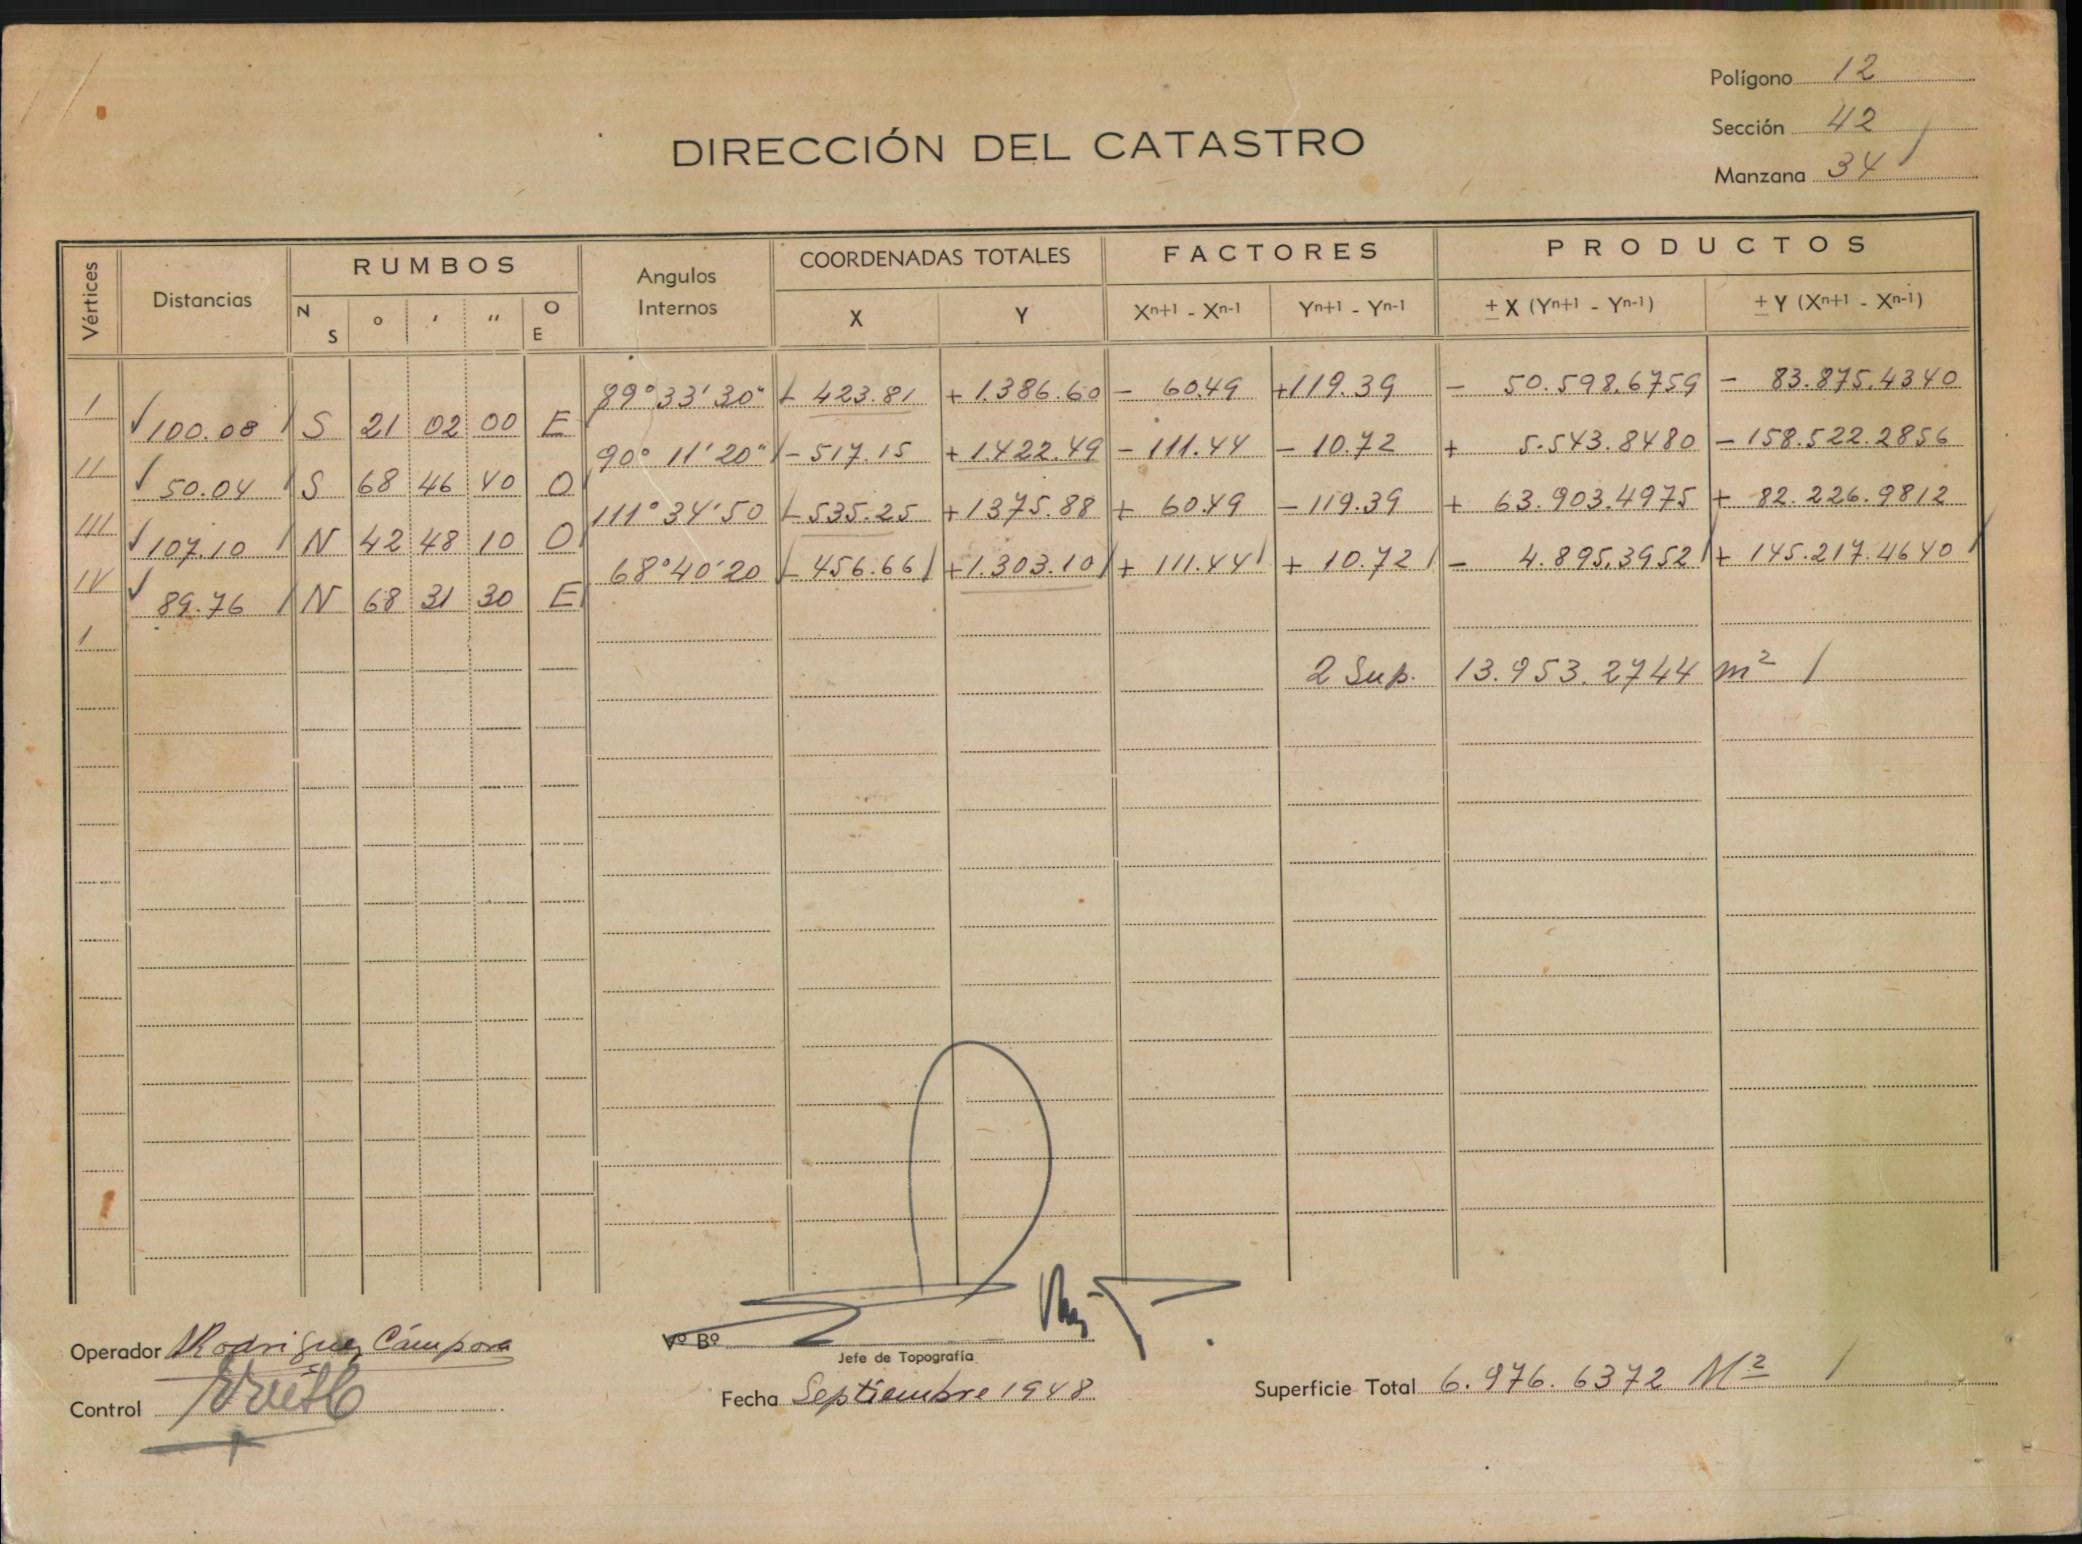 Polígono 12
Sección 42
Manzana 34
DIRECCIÓN DEL CATASTRO
Vértices Distancias RUMBOS Angulos Internos COORDENADAS TOTALES FACTORES PRODUCTOS
N S ° ' " O E X Y Xn+1 - Xn-1 Yn+1 - Yn-1 ± X (Yn+1 - Yn-1) ± Y (Xn+1 - Xn-1)
I 89°33'30" - 423.81 + 1.386.60 - 60.49 +119.39 - 50.598.6759 - 83.875.4340
100.08 S 21 02 00 E
II 90° 11'20" - 517.15 + 1.422.49 - 111.44 - 10.72 + 5.543.8480 - 158.522.2856
50.04 S 68 46 40 O
III 111°34'50 - 535.25 + 1375.88 + 60.49 - 119.39 + 63.903.4975 + 82.226.9812
107.10 N 42 48 10 O
IV 68°40'20 - 456.66 + 1.303.10 + 111.44 + 10.72 - 4.895.3952 + 145.217.4640
89.76 N 68 31 30 E
I
2 Sup. 13.953.2744 m²
Operador Rodriguez Cámpora
Vº Bº
Jefe de Topografía
Control
Fecha Septiembre 1948
Superficie Total 6.976.6372 M²